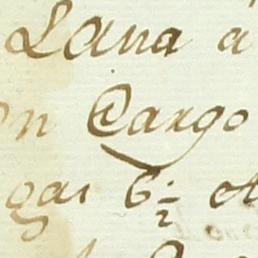 Lana a
on Cargo
gas 6 1/2